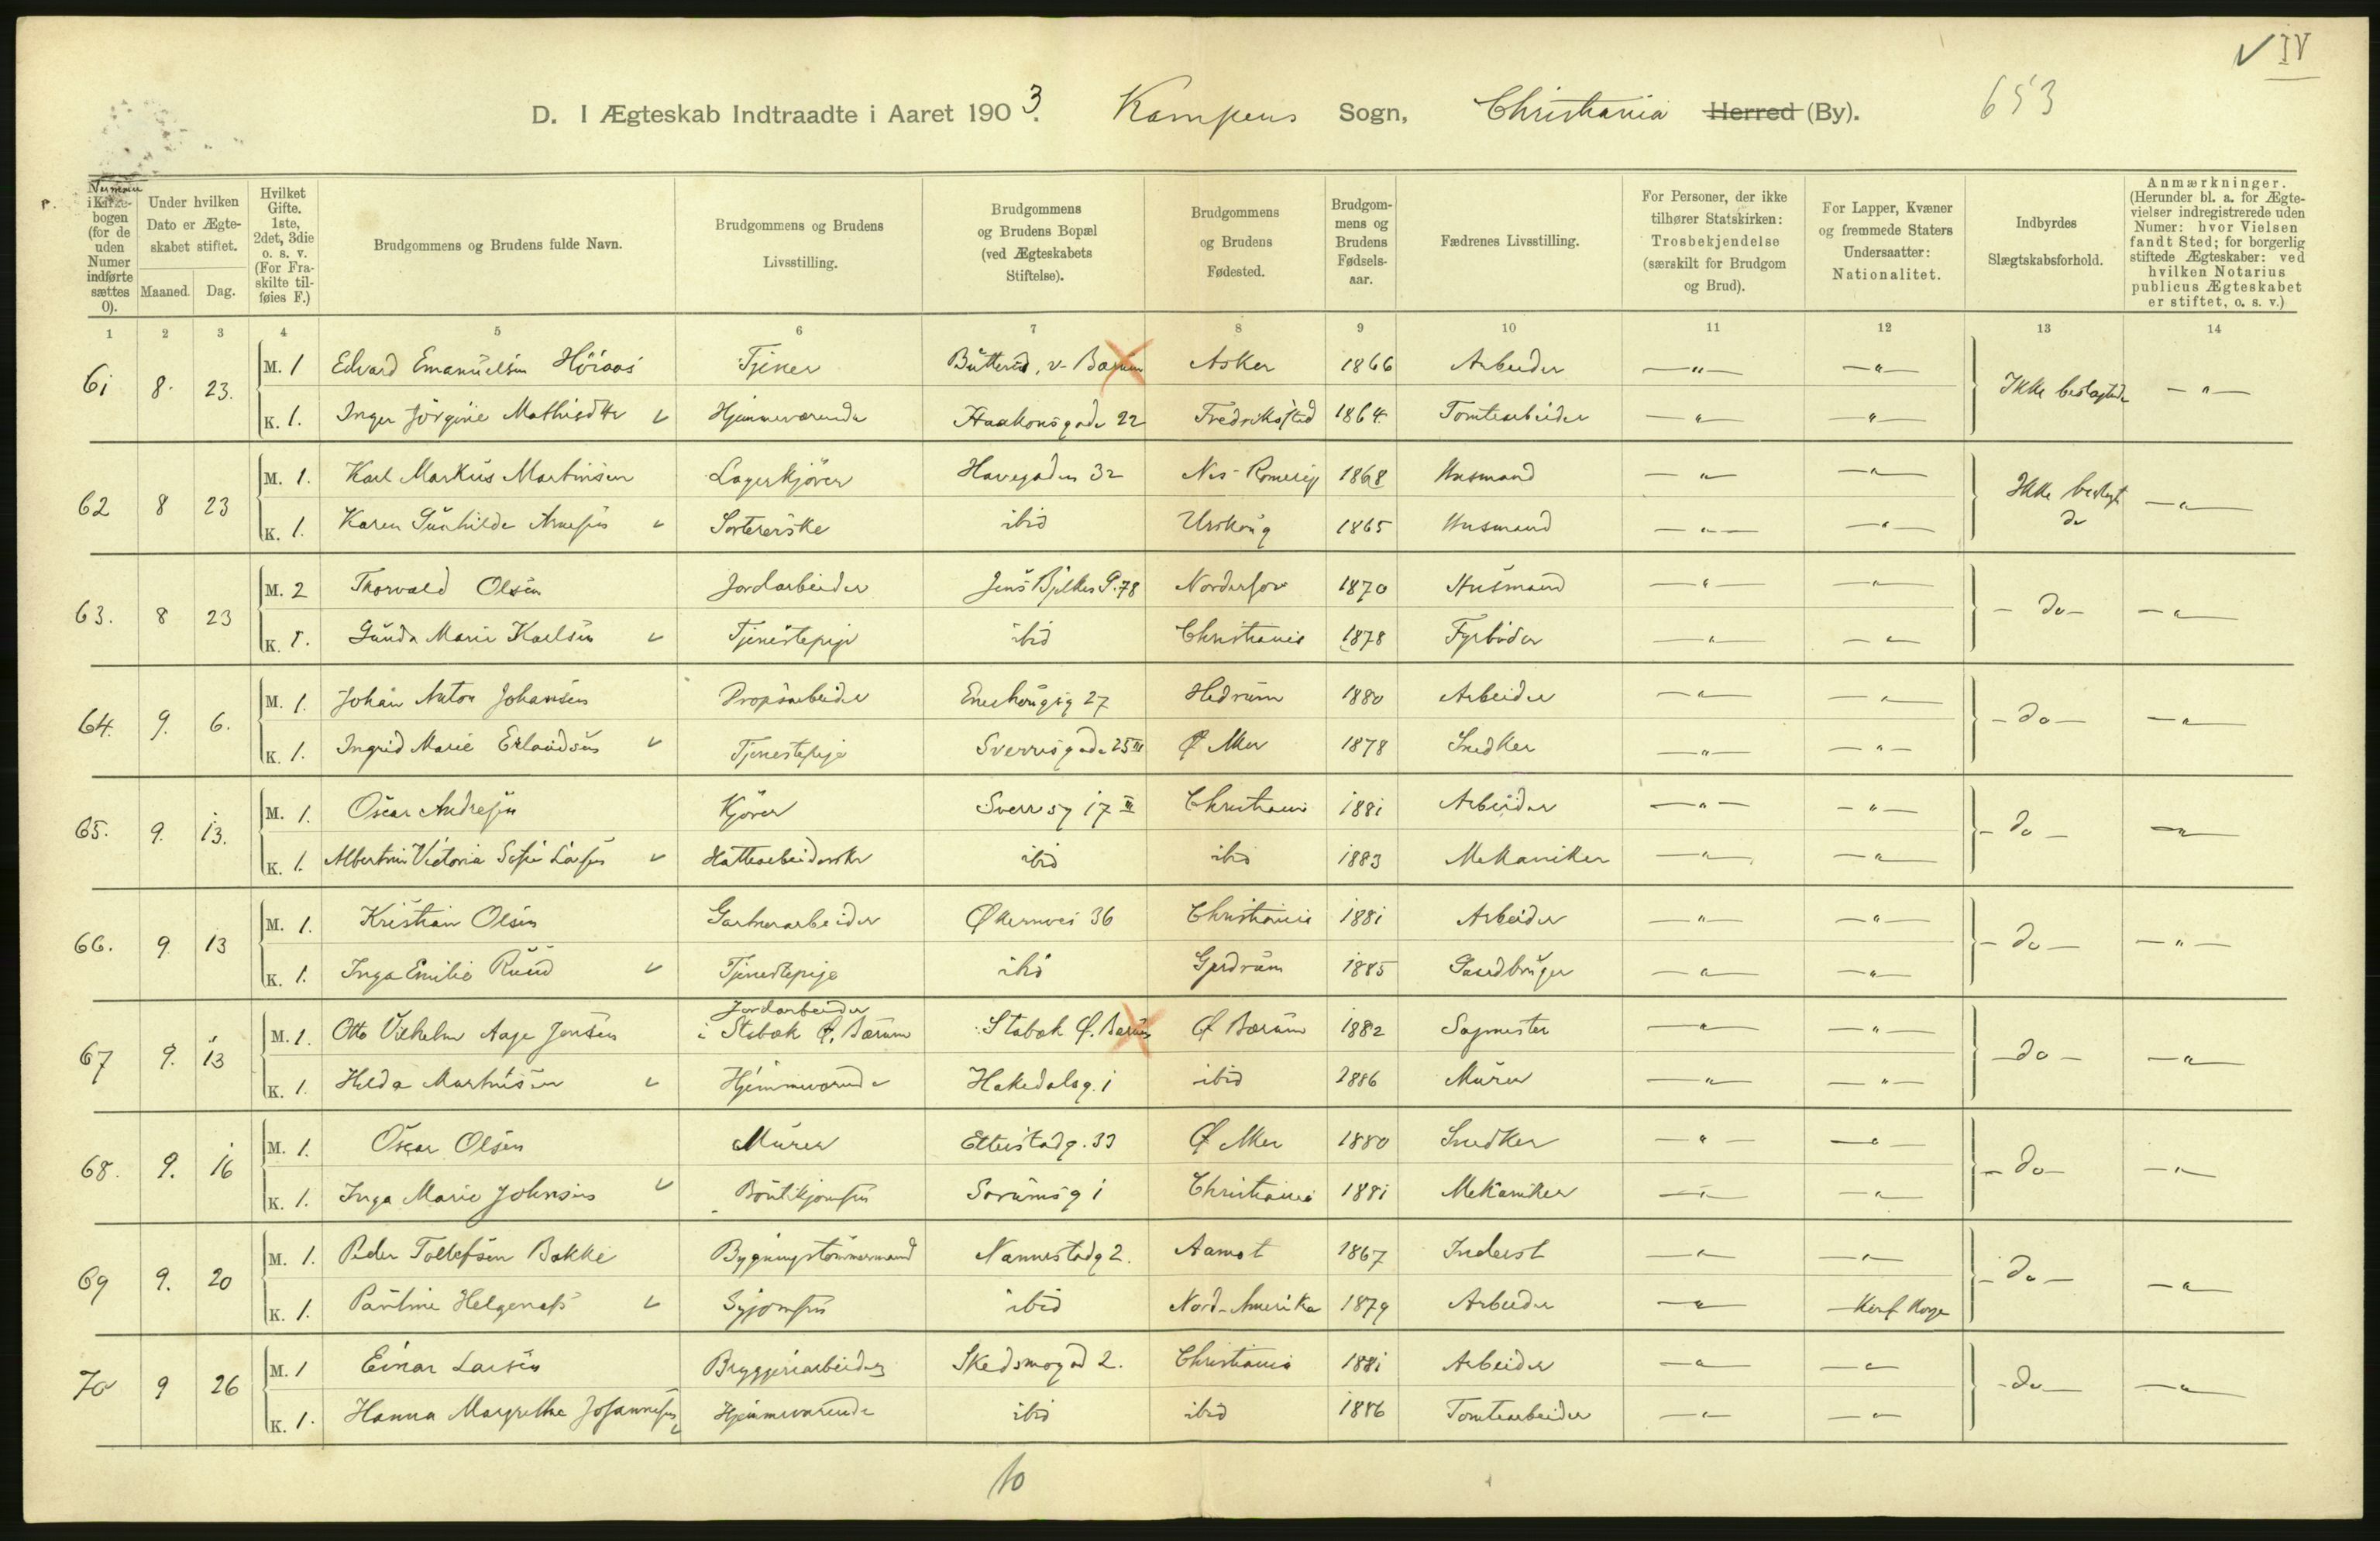 V IV
653
D. I Ægteskab Indtraadte i Aaret 1903. Kampens Sogn, Christiania Herred (By).
Nummer i Kirke-bogen (for de uden Numer indførte sættes 0).
Under hvilken Dato er Ægte-skabet stiftet.
Maaned. Dag.
Hvilket Gifte. 1ste, 2det, 3die o. s. v. (For Fra-skilte til-føies F.)
Brudgommens og Brudens fulde Navn.
Brudgommens og Brudens Livsstilling.
Brudgommens og Brudens Bopæl (ved Ægteskabets Stiftelse).
Brudgommens og Brudens Fødested.
Brudgom-mens og Brudens Fødsels-aar.
Fædrenes Livsstilling.
For Personer, der ikke tilhører Statskirken: Trosbekjendelse (særskilt for Brudgom og Brud).
For Lapper, Kvæner og fremmede Staters Undersaatter: Nationalitet.
Indbyrdes Slægtskabsforhold.
Anmærkninger. (Herunder bl. a. for Ægte-vielser indregistrerede uden Numer: hvor Vielsen fandt Sted; for borgerlig stiftede Ægteskaber: ved hvilken Notarius publicus Ægteskabet er stiftet, o. s. v.)
1 2 3 4 5 6 7 8 9 10 11 12 13 14
61 8. 23. M. 1 Edvard Emanuelsen Tjener v. Bærum Asker 1866 Arbeider —"— —"— Ikke beslægtede —"—
K. 1. Inger Jörgine Mathisdtr Hjemmeværende Haakonsgade 22 Fredrikstad 1864. Tomtearbeider —"— —"—
62 8 23 M. 1. Karl Markus Martinsen Lagerkjörer Havegaden 32 Nes Romerige 1868 Husmand —"— —"— Ikke beslægtede —"—
K. 1. Karen Gunhilde Arnesen Sortererske ibid Urskoug 1865 Husmand —"— —"—
63. 8 23 M. 2 Thorvald Olsen Jordarbeider Jens Bjelkes G. 78 Nordrehov 1870 Husmand —"— —"— — do — —"—
K. 1. Gunda Marie Karlsen Tjenestepige ibid Christiania 1878 Fyrböder —"— —"—
64. 9. 6. M. 1. Johan Anton Johansen Enebakg 27 Hedrum 1880 Arbeider —"— —"— — do — —"—
K. 1. Ingrid Marie Erlandsen Tjenestepige Sverresgade 25 III Ø Aker 1878 Snedker —"— —"—
65. 9. 13. M. 1. Oscar Andresen Kjörer Sverresg 17 III Christiania 1881 Arbeider —"— —"— — do — —"—
K. 1. Albertine Victoria Sofie Larsen Hattearbeiderske ibid ibid 1883 Mekaniker —"— —"—
66. 9 13 M. 1. Kristian Olsen Gartnerarbeider Økernvei 36 Christiania 1881 Arbeider —"— —"— — do — —"—
K. 1. Inga Emilie Ruud Tjenestepige ibid Gjerdrum 1885 Gaardbruger —"— —"—
67 9. 13 M. 1. Otto Vilhelm Aage Jensen Jordarbeider i Stabæk Ø. Bærum Stabæk Ø. Bærum Ø Bærum 1882 Sagmester —"— —"— — do — —"—
K. 1. Hilda Martinsen Hjemmeværende Hakedalsg. 1 ibid 1886 Murer —"— —"—
68. 9. 16 M. 1. Oscar Olsen Murer Etterstadg. 33 Ø Aker 1880 Snedker —"— —"— — do — —"—
K. 1. Inga Marie Johnsen Butikjomfru Sørumsg 1 Christiania 1881 Mekaniker —"— —"—
69 9. 20 M. 1. Peder Tollefsen Bakke Bygningstömmermand Nannestadg 2. Aamot 1867 Inderst —"— —"— — do — —"—
K. 1. Pauline Helgenes Syjomfru ibid Nord-Amerika 1879 Arbeider —"— Norge
70 9 26 M. 1 Einar Larsen Bryggeriarbeider Skedsmogad 2. Christiania 1881 Arbeider —"— —"— — do — —"—
K. 1. Hanna Margrethe Johannesen Hjemmeværende ibid ibid 1886 Tomtearbeider —"— —"—
10